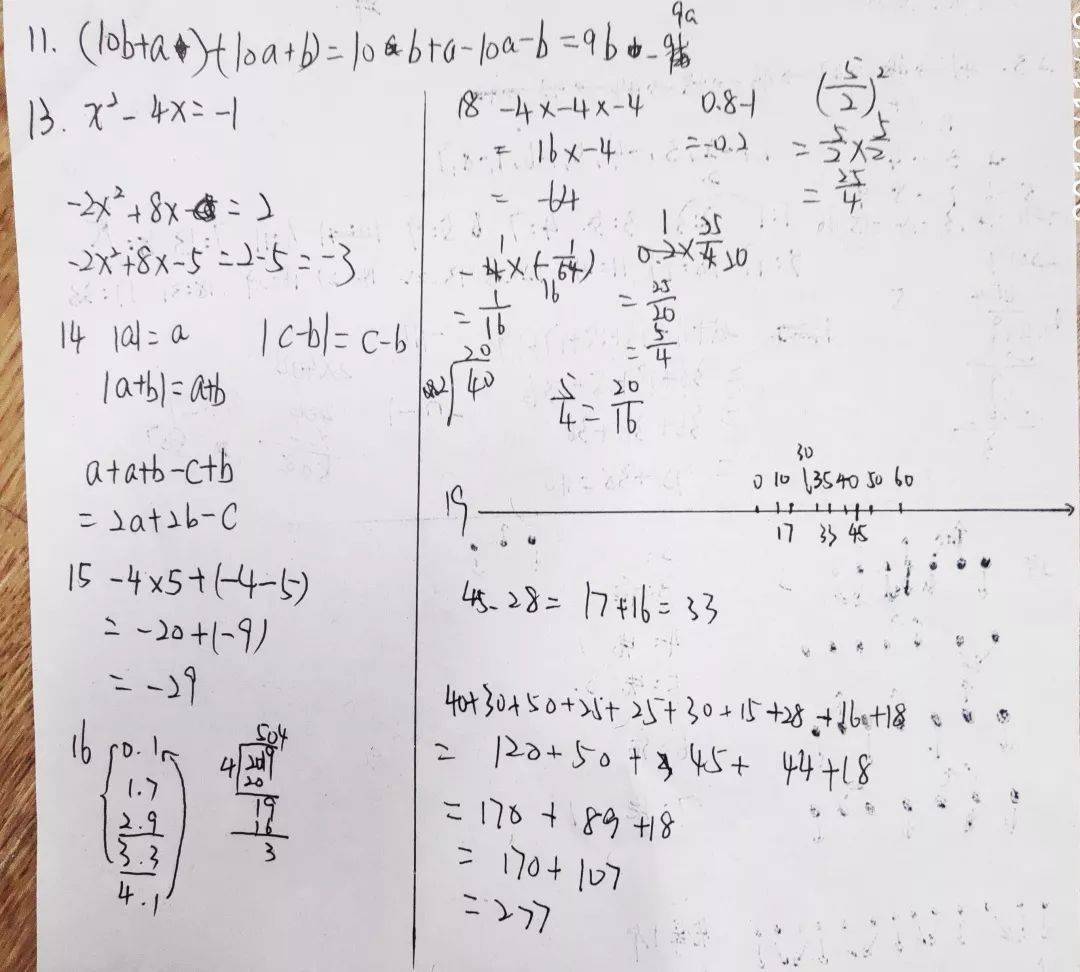 11. (10b+a)-(10a+b)=10b+a-10a-b=9b-9a
13. x²-4x=-1
-2x²+8x=2
-2x²+8x-5=2-5=-3
14 |a|=a |c-b|=c-b
|a+b|=a+b
a+a+b-c+b
=2a+2b-c
15 -4×5+(-4-5)
=-20+(-9)
=-29
16 0.1
1.7
2.9
3.3
4.1
504
4 209
20
19
16
3
18 -4×-4×-4
=16×-4
=-64
0.8-1
=-0.2
(5/2)²
=5/2×5/2
=25/4
-4×(-1/64)
1
16
=1/16
=25/20
=5/4
20
40
5/4=20/16
19
30
0 10 35 40 50 60
17 33 45
45-28=17+16=33
40+30+50+25+25+30+15+28+16+18
=120+50+45+44+18
=170+89+18
=170+107
=277